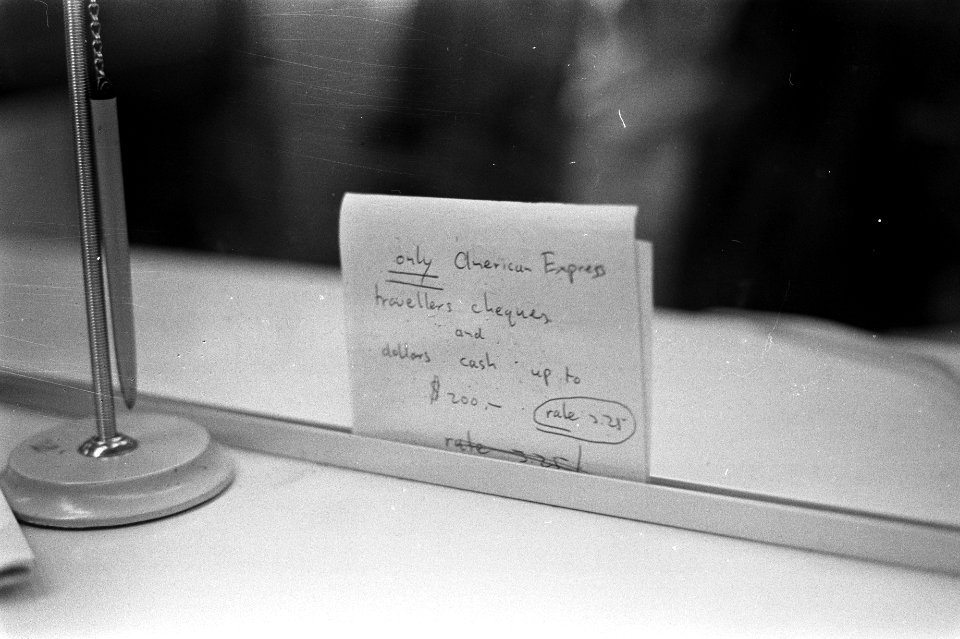 only American Express
travellers cheques
and
dollars cash up to
$ 200,-
rate 3.25
rate 3.25